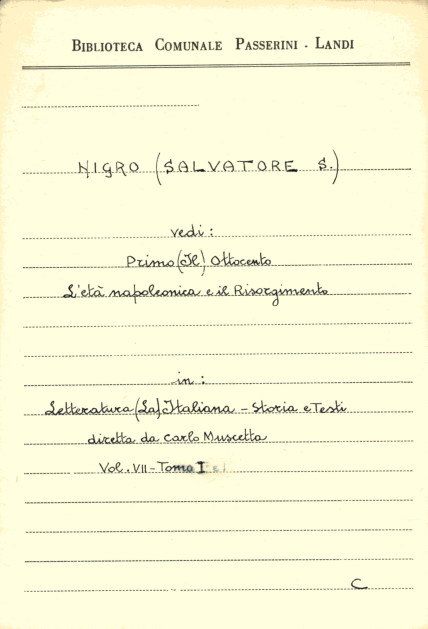 BIBLIOTECA COMUNALE PASSERINI - LANDI
NIGRO (SALVATORE S.)
vedi:
Primo (Il) Ottocento
L'età napoleonica e il Risorgimento
in:
Letteratura (La) Italiana - Storia e Testi
diretta da Carlo Muscetta
Vol. VII - Tomo I
C